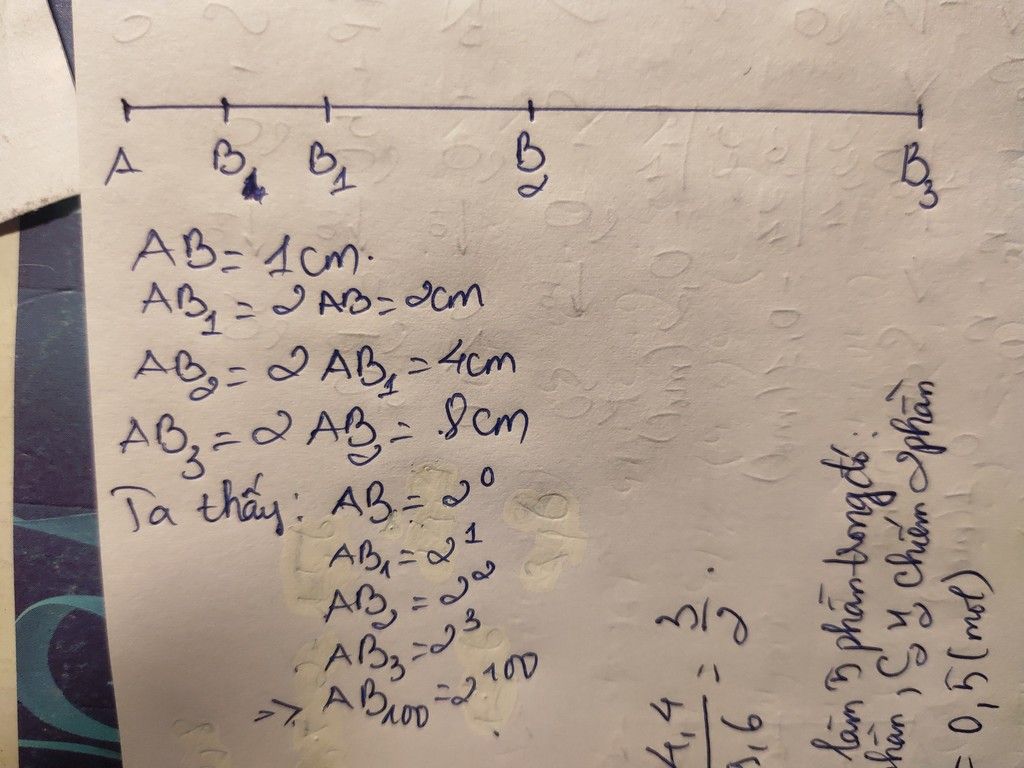 A B B₁ B₂ B₃
AB = 1cm.
AB₁ = 2 AB = 2cm
AB₂ = 2 AB₁ = 4cm
AB₃ = 2 AB₂ = 8cm
Ta thấy: AB = 2⁰
AB₁ = 2¹
AB₂ = 2²
AB₃ = 2³
=> AB₁₀₀ = 2¹⁰⁰.
4,4 / ,6 = 3/2.
làm 5 phần trong đó:
, 2 chiếm 2 phần
= 0,5 (mol)